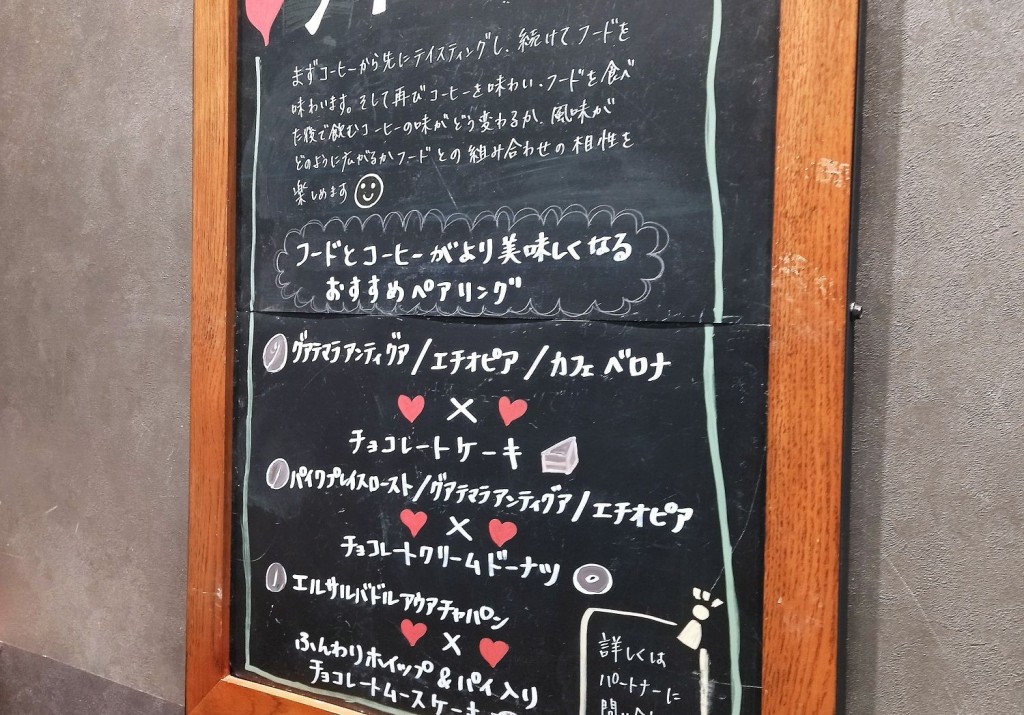 まずコーヒーから先にテイスティングし、続けてフードを
味わいます。そして再びコーヒーを味わい、フードを食べ
た後で飲むコーヒーの味がどう変わるか、風味が
どのように広がるかフードとの組み合わせの相性を
楽しめます
フードとコーヒーがより美味しくなる
おすすめペアリング
グアテマラアンティグア/エチオピア/カフェベロナ
×
チョコレートケーキ
パイクプレイスロースト/グアテマラアンティグア/エチオピア
×
チョコレートクリームドーナツ
エルサルバドルアウアチャパン
×
ふんわりホイップ&パイ入り
チョコレートムースケーキ
詳しくは
パートナーに